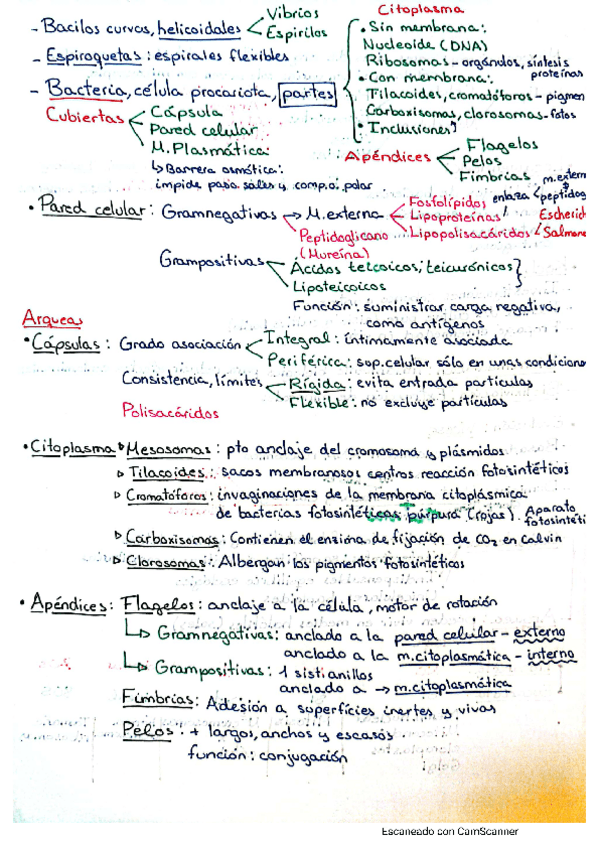 - Bacilos curvos, helicoidales < Vibrios
Espirilos
- Espiroquetas: espirales flexibles
- Bacteria, célula procariota, partes
Cubiertas < Cápsula
Pared celular
M. Plasmática:
↳ Barrera osmótica:
impide pasa sales y comp. oi. polar
Citoplasma
• Sin membrana:
Nucleoide (DNA)
Ribosomas - orgánulos, síntesis
proteínas
• Con membrana:
Tilacoides, cromatóforos - pigmen
Carboxisomas, clorosomas - fotos
• Inclusiones
Apéndices < Flagelos
Pelos
Fimbrias
• Pared celular: Gramnegativas → M. externa < Fosfolípidos
Lipoproteínas
Lipopolisacáridos
enlaza < m. extern
peptidog
Escherich
Salmone
Peptidoglicano
(Mureína)
Grampositivas < Ácidos teicoicos, teicurónicos
Lipoteicoicos
Función: suministrar carga negativa,
como antígenos
Arquea
• Cápsulas: Grado asociación < Integral: íntimamente asociada
Periférica: sup. celular sólo en unas condicione
Consistencia, límites < Rígida: evita entrada partículas
Flexible: no excluye partículas
Polisacáridos
• Citoplasma ▷ Mesosomas: pto anclaje del cromosoma y plásmidos
▷ Tilacoides: sacos membranosos centros reacción fotosintéticos
▷ Cromatóforos: invaginaciones de la membrana citoplásmica
de bacterias fotosintéticas púrpura (rojas). Aparato
fotosintéti
▷ Carboxisomas: Contienen el enzima de fijación de CO2 en Calvin
▷ Clorosomas: Albergan los pigmentos fotosintéticos
• Apéndices: Flagelos: anclaje a la célula, motor de rotación
↳ Gramnegativas: anclado a la pared celular - externo
anclado a la m. citoplasmática - interno
↳ Grampositivas: 1 sist anillos
anclado a → m. citoplasmática
Fimbrias: Adesión a superfícies inertes y vivas
Pelos: + largos, anchos y escasos
función: conjugación
Escaneado con CamScanner